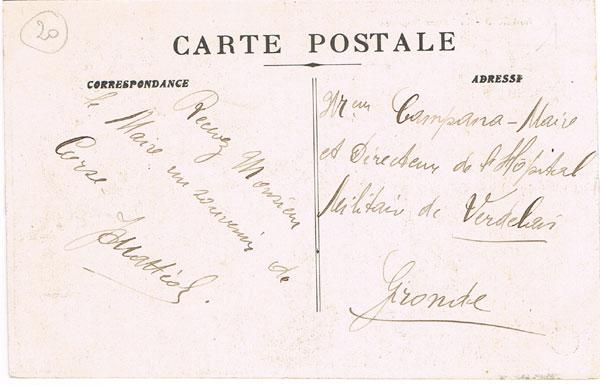 20
CARTE POSTALE
CORRESPONDANCE
Recevez Monsieur
le Maire un souvenir de
Corse-
ADRESSE
Campana-Maire
et Directeur de l'Hôpital
Militair de Verdelais
Gironde